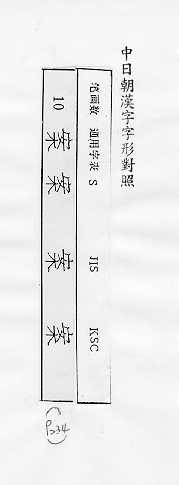 中日朝漢字字形對照
笔画数 通用字表 S JIS KSC
10 案 案 案 案
(P234)